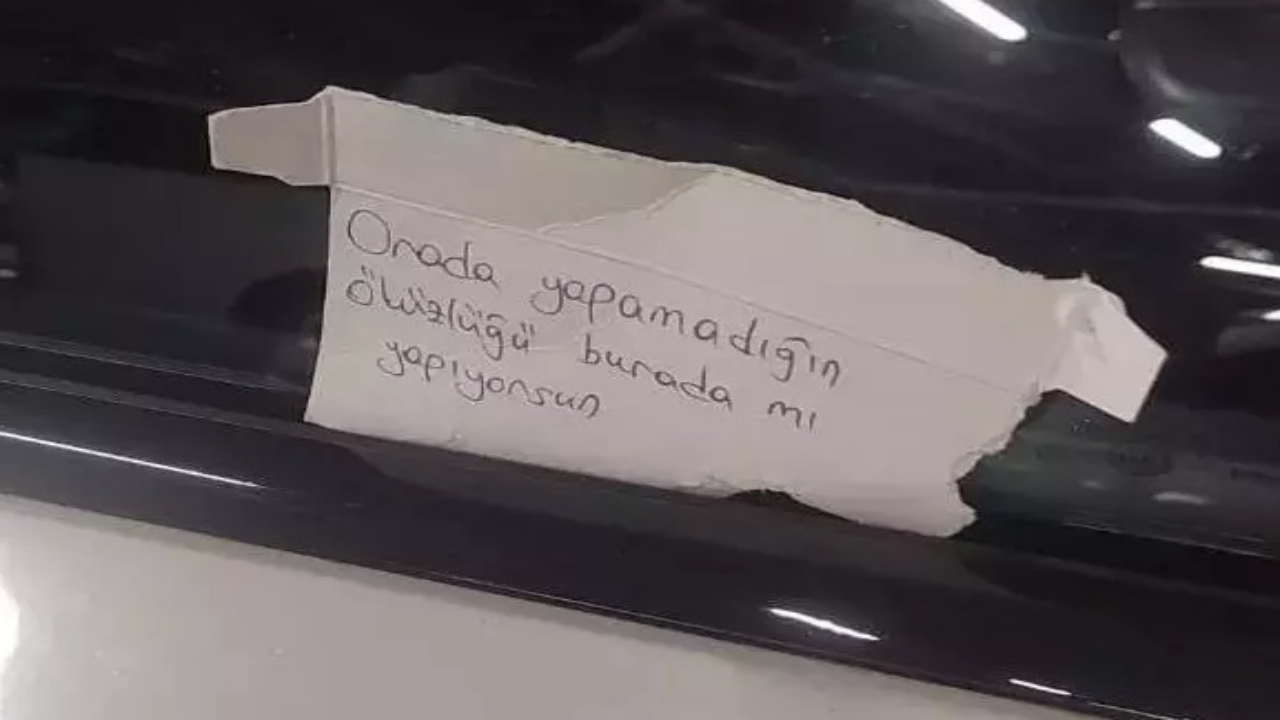 Orada yapamadığın
öküzlüğü burada mı
yapıyorsun